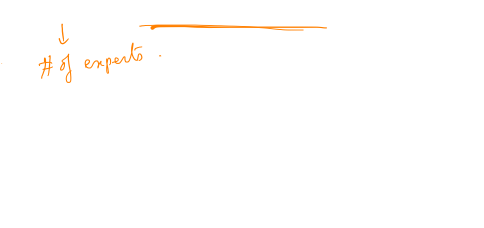 # of experts.